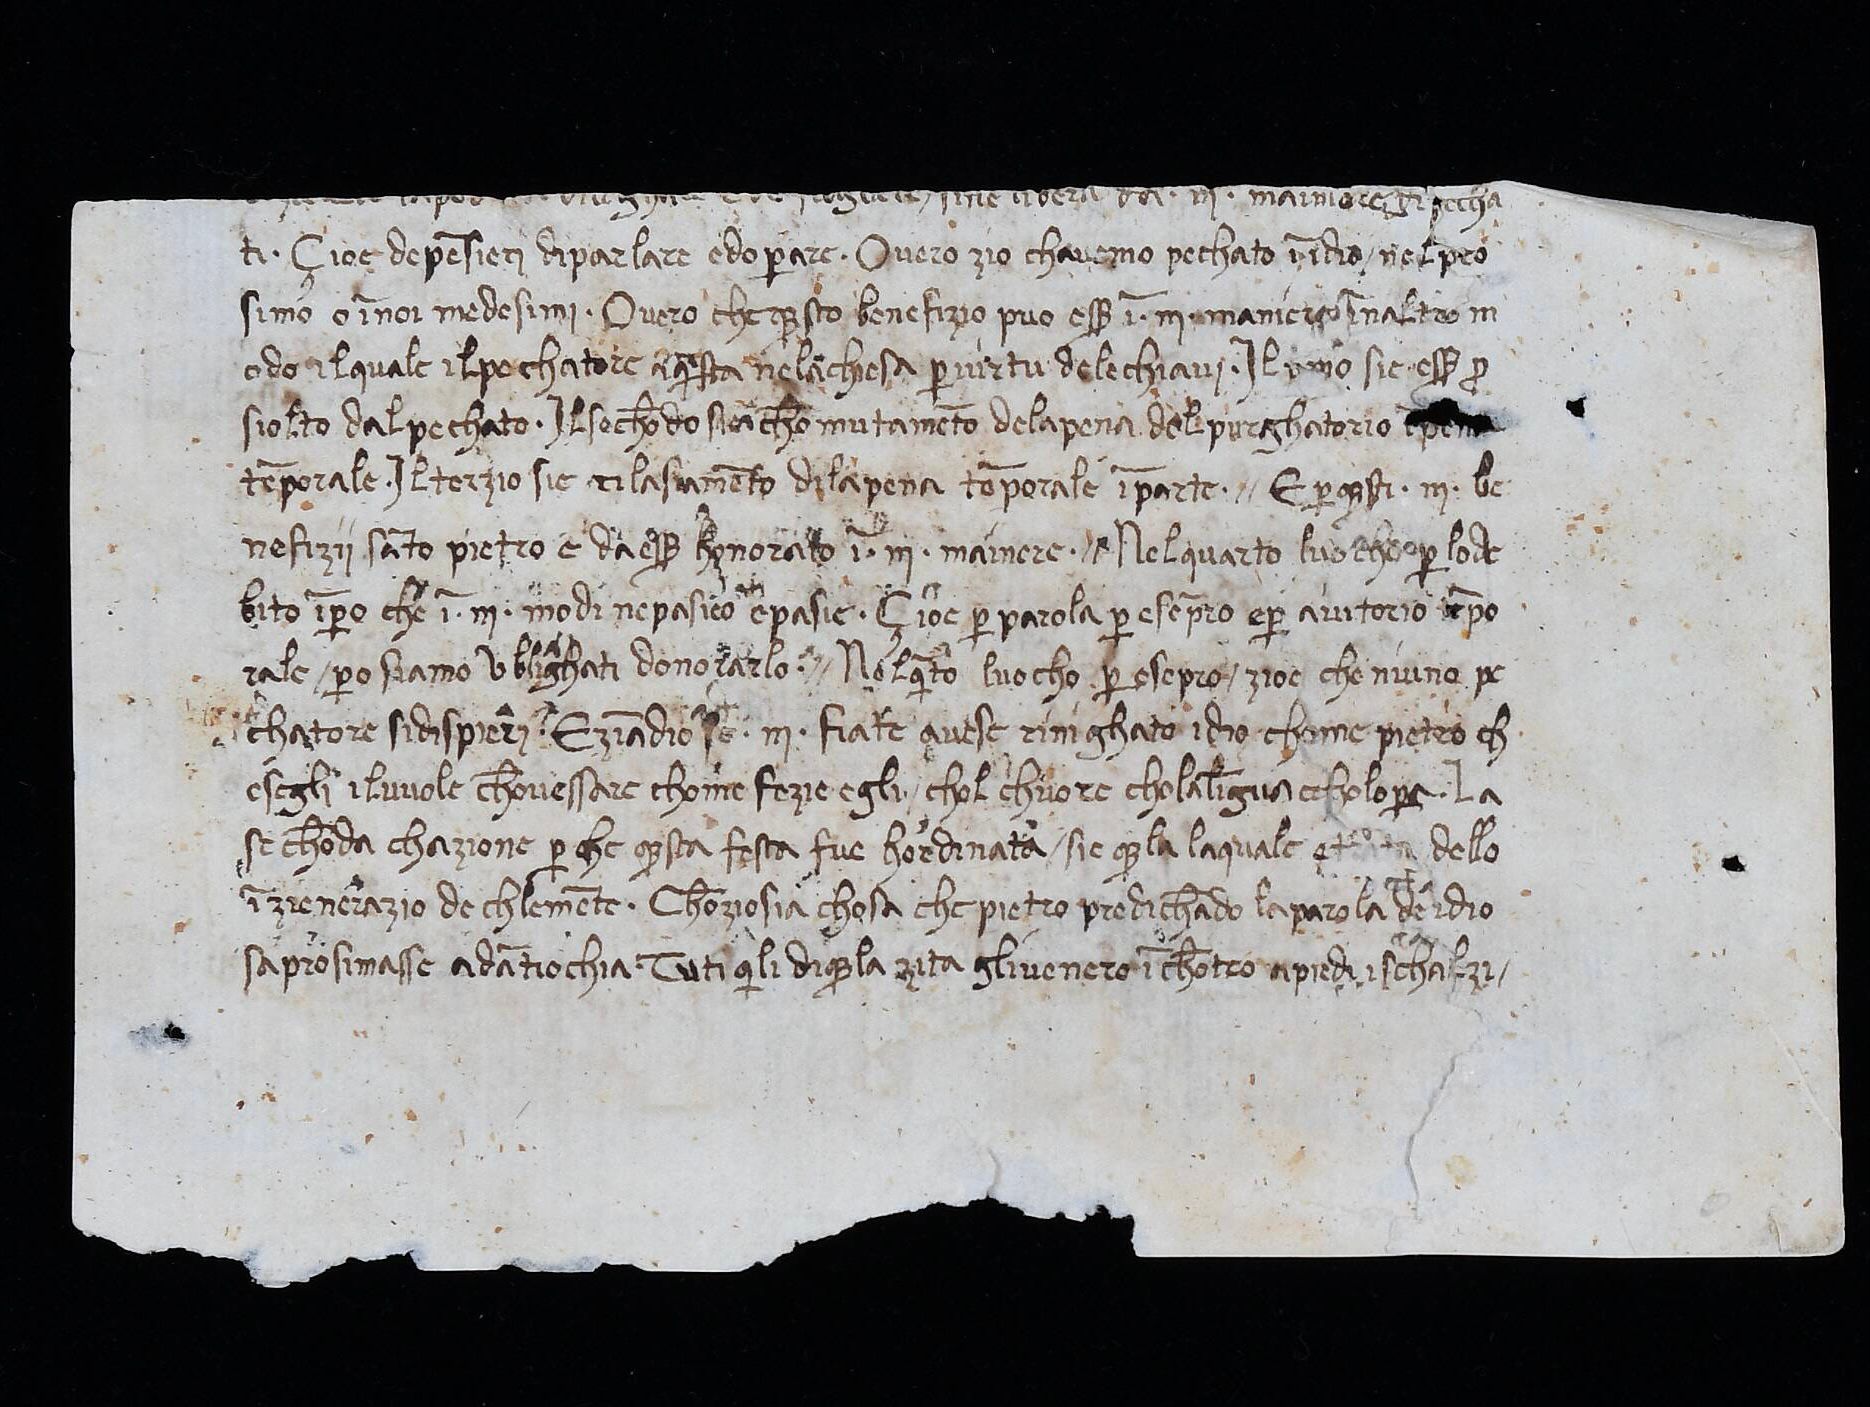 sine libera da · iij · mainiere di pecha
ti · Çioe depēsierj diparlare edop̄are · Overo zio chavemo pechato īidio / nelpro
simo o īnoi medesimj · Overo che q̄sto benefizio puo ess̄ ī · iij · maniere īnaltro m
odo ilquale ilpechatore aq̄sta nelachiesa p̄ virtu delechiavj · Jl p̄mo sie ess̄ p̄
siolto dalpechato · Jlsechōdo sieāchō mutamēto delapena delpurghatorio ēpena
tēporale · Jlterzio sie rilasiamēto dilapena tēporale īparte · // E p̄ q̄sti · iij · be
nefizij sāto pietro e da ess̄ honorato ī · iij · mainere · // Nelquarto luocho p̄ lode
bito īp̄o che ī · iij · modi nepasieo epasie · Çioe p̄ parola p̄ esēpro ep̄ avitorio tēpo
rale / p̄o siamo vblighati donorarlo · // Nelq̄to luocho p̄ esepro / zioe che nivino pe
chatore sidispierj · Eziādio se · iij · fiate avese rinighato idio chome pietro ch
esegli iluvole chōvessare chome fezie egli / chol chuore cholalīgva echolop̄a · La
sechōda chazione p̄ che q̄sta festa fue hordinata / sie q̄la laquale e dello
īzienerazio de chlemēte · Chōziosia chosa che pietro predichādo laparola de idio
saprosimasse adātiochia · Tuti q̄li diq̄la zita glivenero īchōtro apiedi ischalzi /